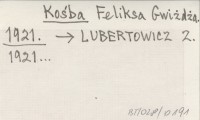 Kośba Feliksa Gwiżdża.
1921. → LUBERTOWICZ Z.
1921...